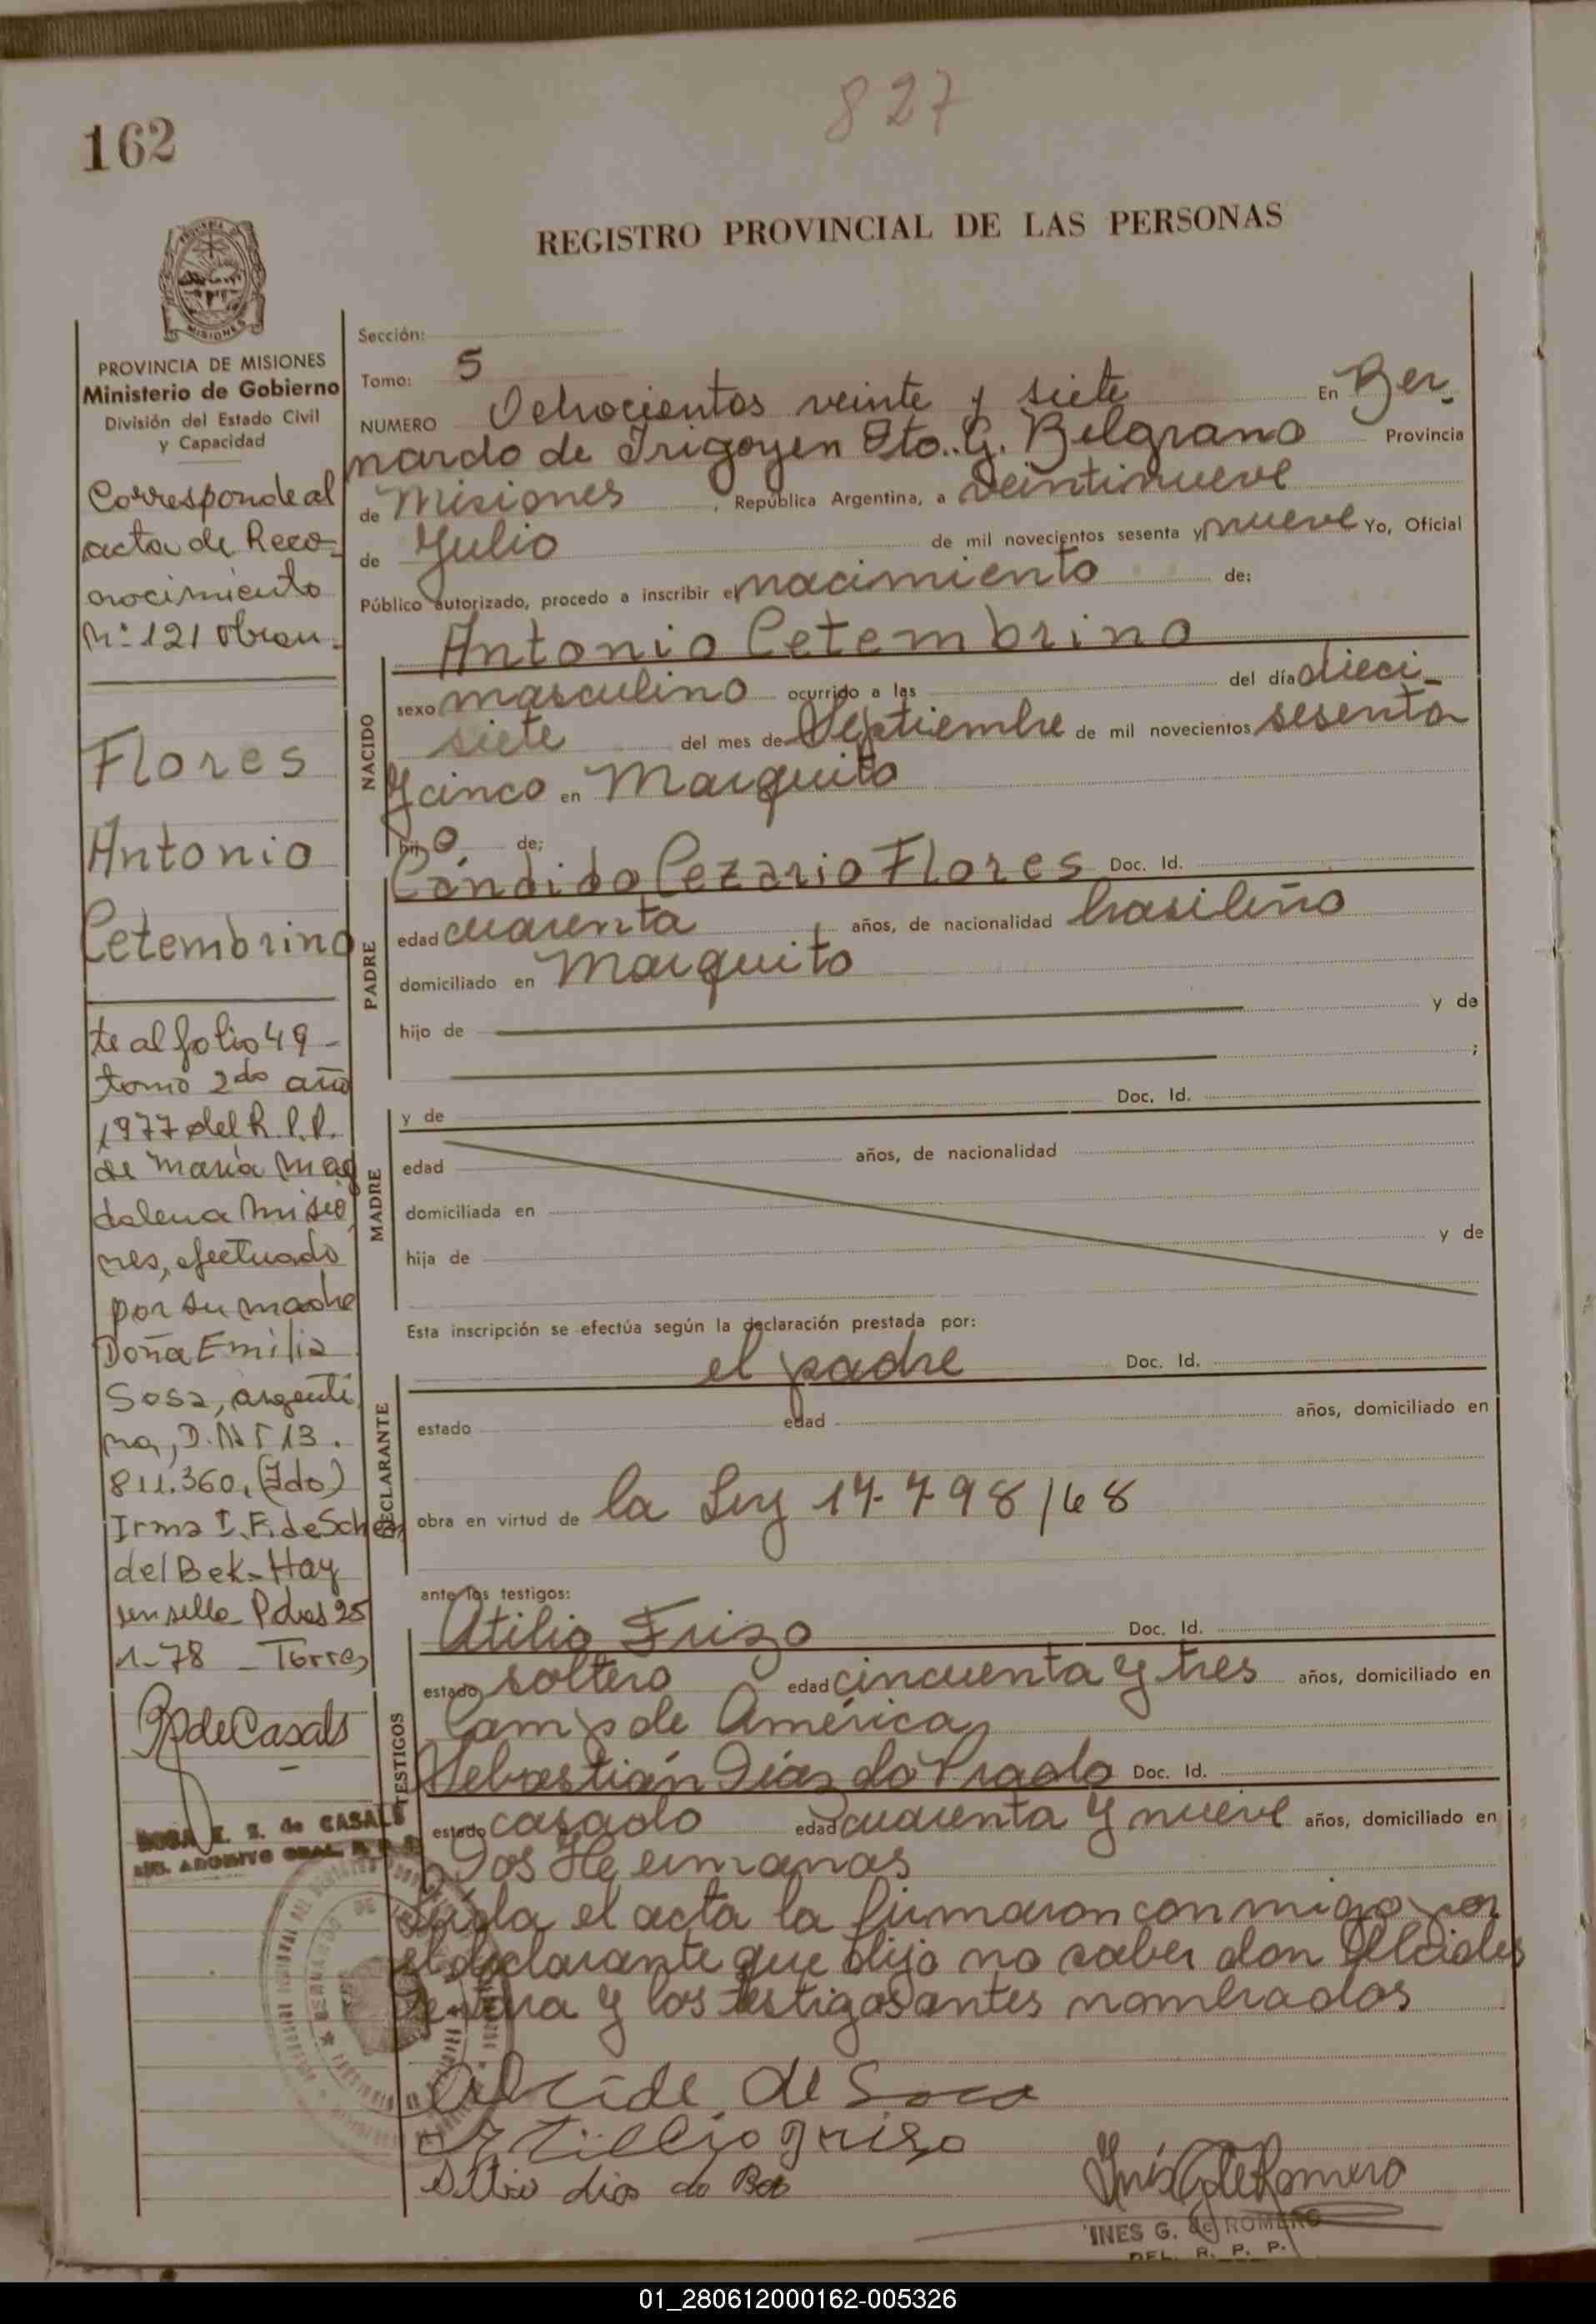 827
162
REGISTRO PROVINCIAL DE LAS PERSONAS
MISIONES
PROVINCIA DE MISIONES
Ministerio de Gobierno
División del Estado Civil
y Capacidad
Corresponde al
acta de Reco-
nocimiento
Nº 121 obran-
Flores
Antonio
Cetembrino
te al folio 49-
tomo 2do año
1977 del R.P.P.
de María Mag
dalena Misio
nes, efectuado
por su madre
Doña Emilia
Sosa, argenti
na, D.N.I 13.
811.360. (Fdo)
Irma I. F. de Sche
del Bek-Hay
un sello Pdas 25
1-78 - Torres
RdeCasals
ROSA E. Z. de CASALS
Sección:
Tomo: 5
NUMERO Ochocientos veinte y siete En Ber-
nardo de Irigoyen Dto. G. Belgrano Provincia
de Misiones, República Argentina, a veintinueve
de Julio de mil novecientos sesenta y nueve Yo, Oficial
Público autorizado, procedo a inscribir el nacimiento de:
Antonio Cetembrino
NACIDO
sexo masculino ocurrido a las del día dieci-
siete del mes de Septiembre de mil novecientos sesenta
y cinco en Marquito
hijo de:
PADRE
Cándido Cezario Flores Doc. Id.
edad cuarenta años, de nacionalidad brasileño
domiciliado en Marquito
hijo de y de
;
MADRE
y de Doc. Id.
edad años, de nacionalidad
domiciliada en
hija de y de
Esta inscripción se efectúa según la declaración prestada por:
DECLARANTE
el padre Doc. Id.
estado edad años, domiciliado en
obra en virtud de la Ley 17.798/68
ante los testigos:
TESTIGOS
Atilio Frizo Doc. Id.
estado soltero edad cincuenta y tres años, domiciliado en
Camp de América
Sebastián Días do Prado Doc. Id.
estado casado edad cuarenta y nueve años, domiciliado en
Dos Hermanas
Leída el acta la firmaron conmigo por
el declarante que dijo no saber don Alcides
y los testigos antes nombrados
Alcide de
Atillio Frizo
dias do
Inés G de Romero
INES G. de ROMERO
DEL. R. P. P.
01_280612000162-005326